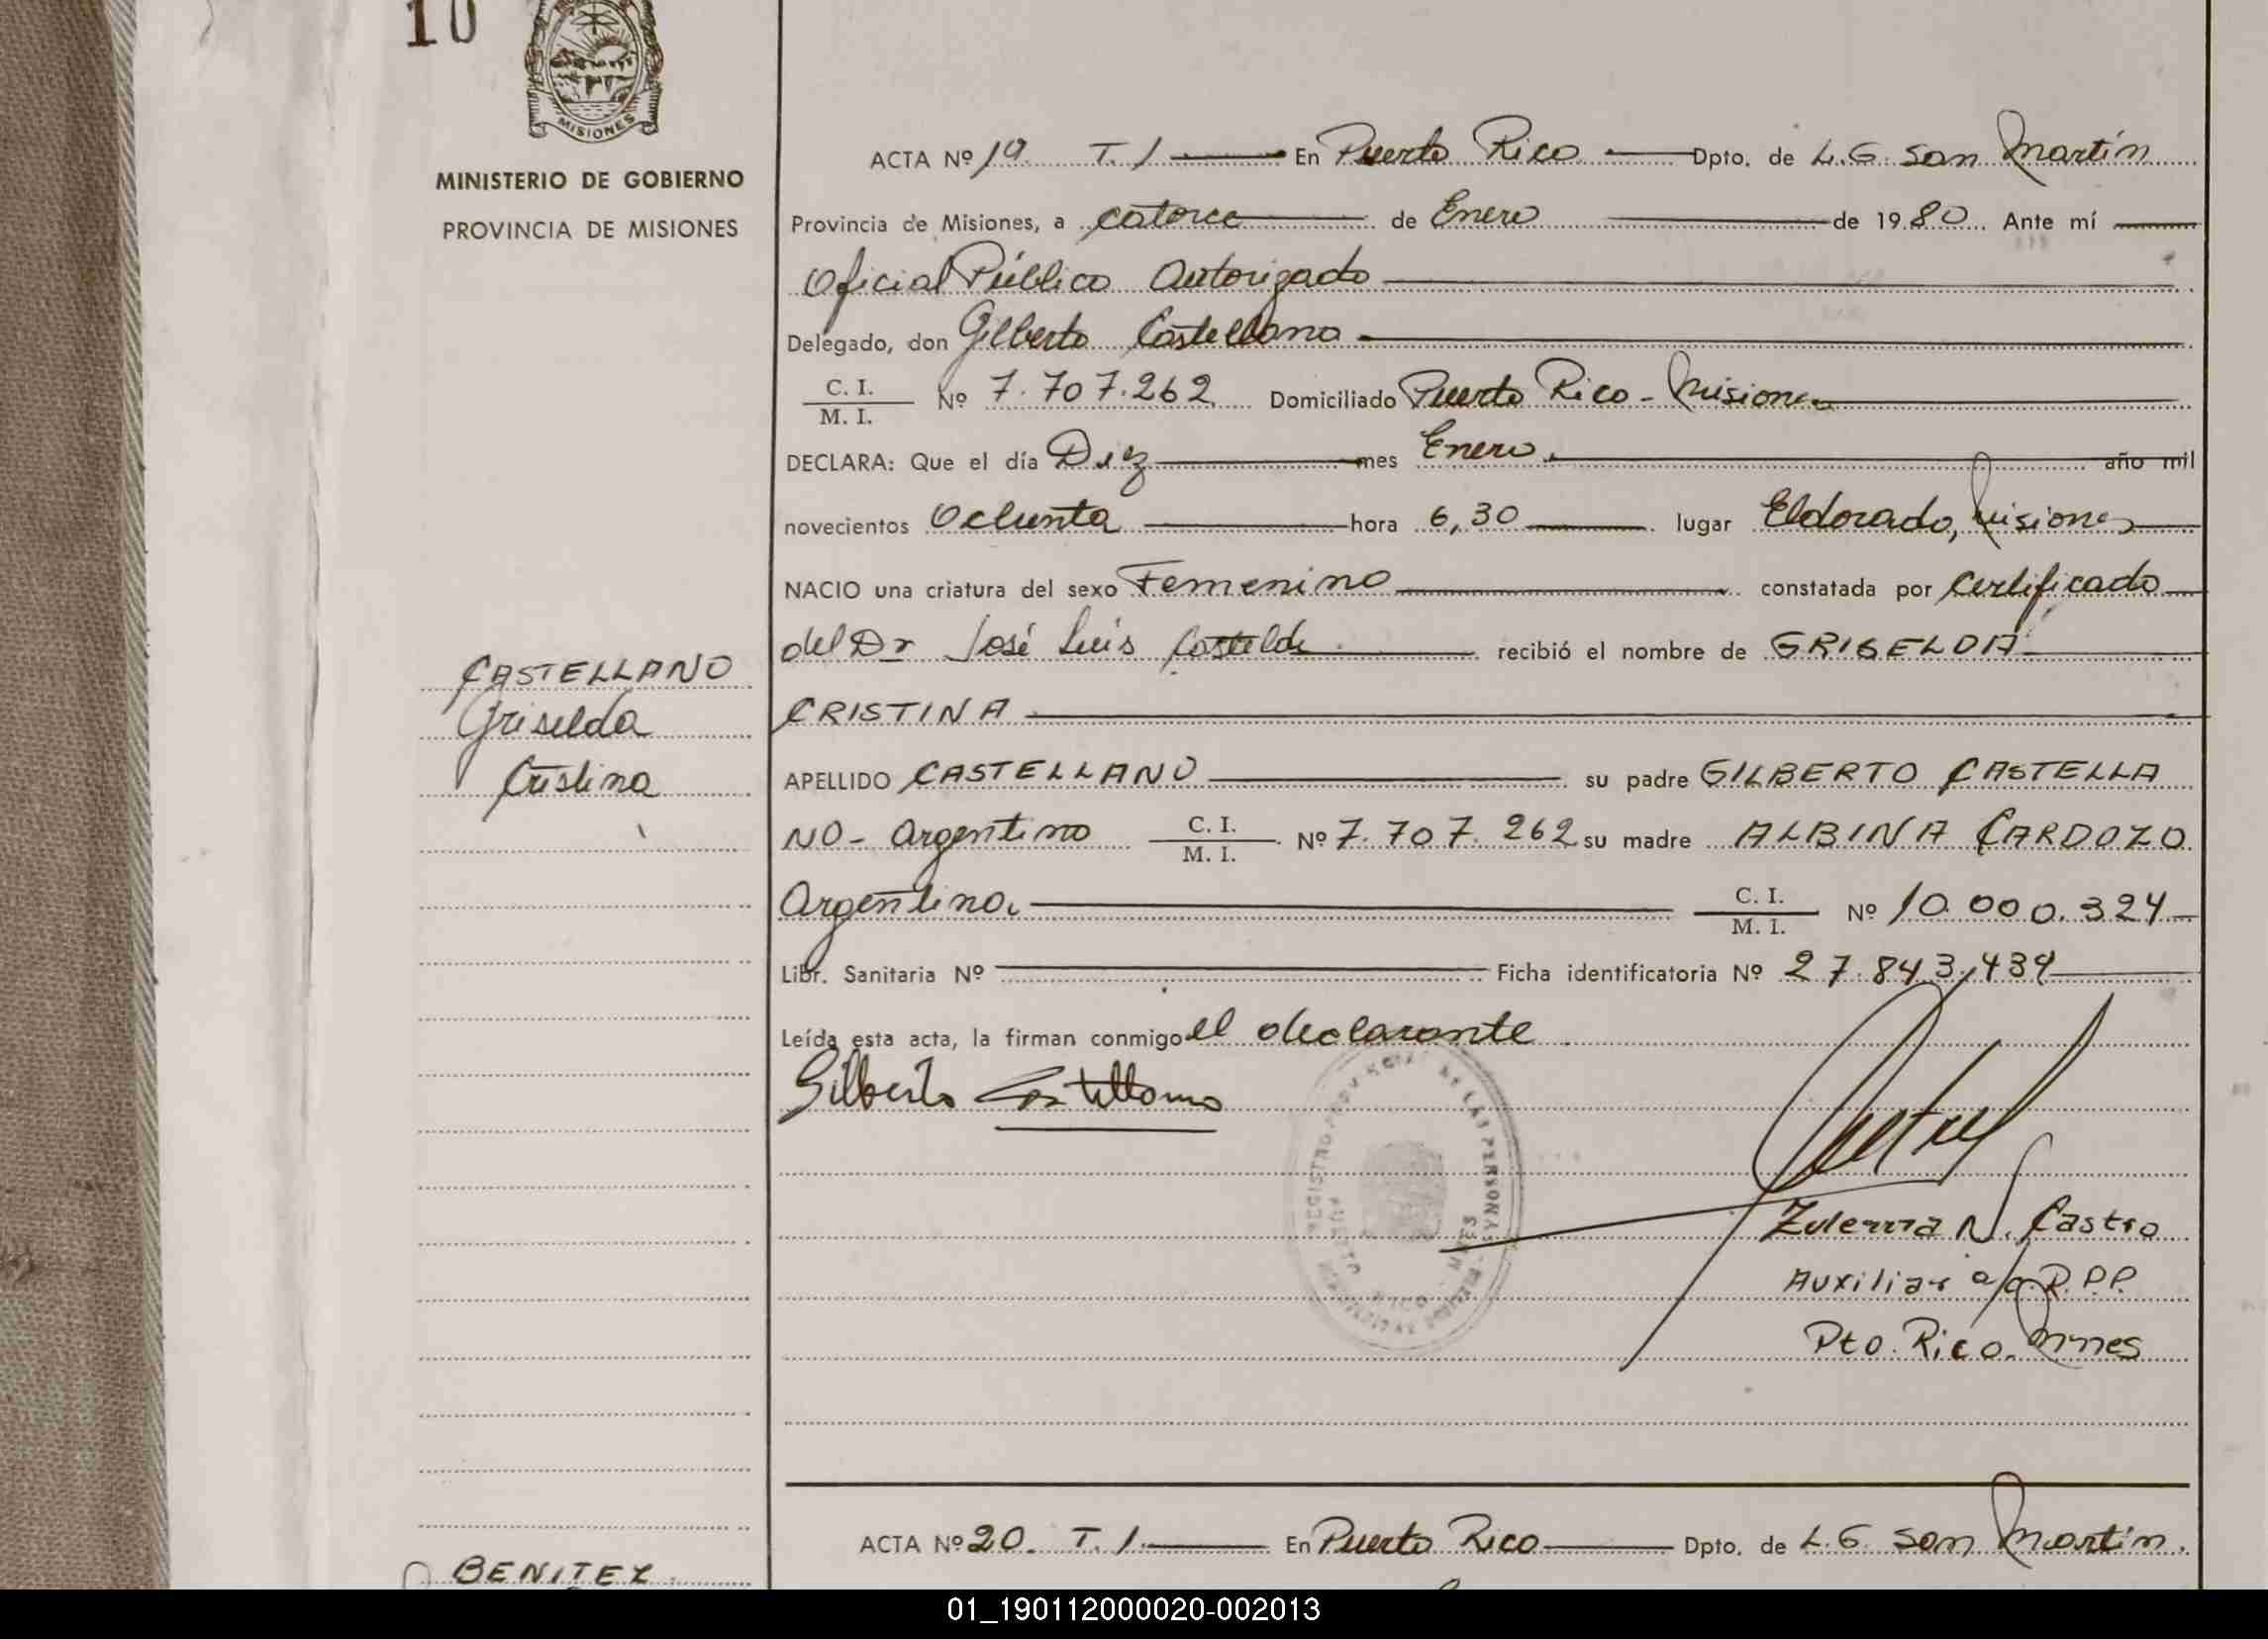 10
MISIONES
MINISTERIO DE GOBIERNO
PROVINCIA DE MISIONES
CASTELLANO
Griselda
Cristina
ACTA Nº 19 T. 1 En Puerto Rico Dpto. de L.G. San Martín
Provincia de Misiones, a catorce de Enero de 1980 Ante mí
Oficial Público Autorizado
Delegado, don Gilberto Castellano
C. I.
M. I. Nº 7.707.262 Domiciliado Puerto Rico - Misiones
DECLARA: Que el día Diez mes Enero año mil
novecientos Ochenta hora 6,30 lugar Eldorado, Misiones
NACIO una criatura del sexo Femenino constatada por Certificado
del Dr José Luis recibió el nombre de GRISELDA
CRISTINA
APELLIDO CASTELLANO su padre GILBERTO CASTELLA
NO - Argentino C. I.
M. I. Nº 7.707.262 su madre ALBINA CARDOZO
Argentina C. I.
M. I. Nº 10.000.324
Libr. Sanitaria Nº Ficha identificatoria Nº 27.843,434
Leída esta acta, la firman conmigo el declarante
Gilberto Castellano
PUERTO RICO - MNES
Zulema N. Castro
Auxiliar a/c. R.P.P.
Pto. Rico. Mnes
ACTA Nº 20. T. 1. En Puerto Rico Dpto. de L.G. San Martín.
BENITEZ
01_190112000020-002013